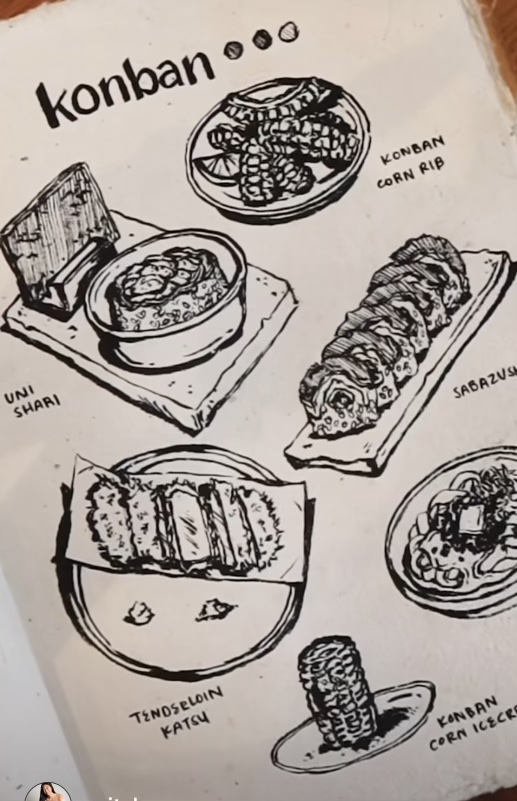 konban
KONBAN
CORN RIB
UNI
SHARI
TENDERLOIN
KATSU
KONBAN
CORN